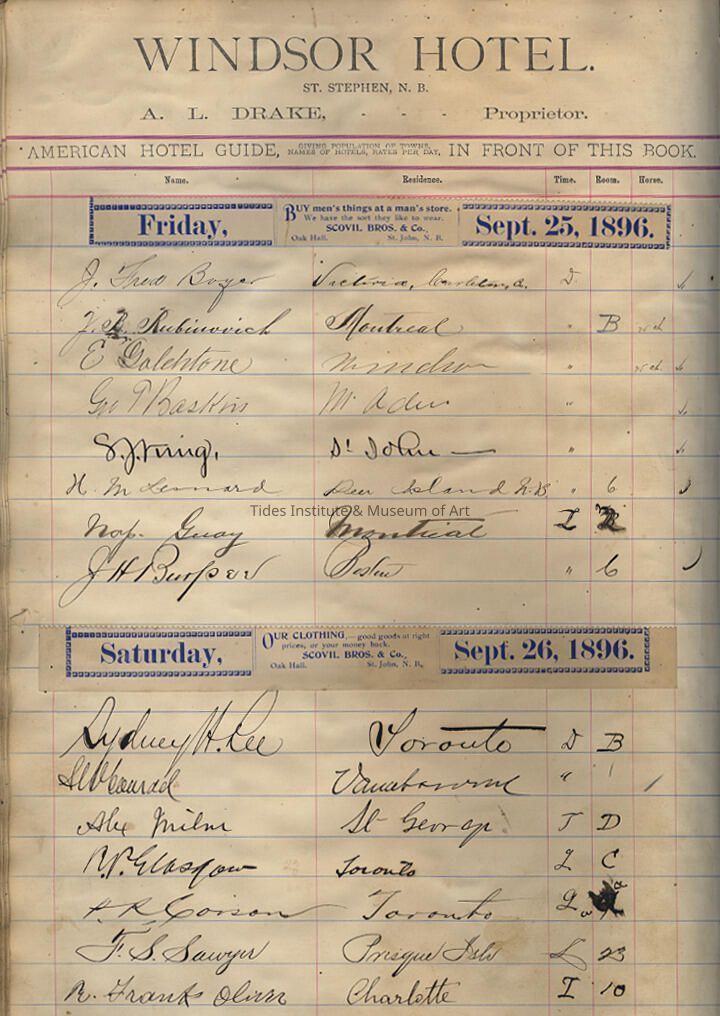 WINDSOR HOTEL.
ST. STEPHEN, N. B.
A. L. DRAKE, - - - Proprietor.
AMERICAN HOTEL GUIDE, GIVING POPULATION OF TOWNS, NAMES OF HOTELS, RATES PER DAY, IN FRONT OF THIS BOOK.
Name. Residence. Time. Room. Horse.
Friday, BUY men's things at a man's store. We have the sort they like to wear. SCOVIL BROS. & Co., Oak Hall. St. John, N. B. Sept. 25, 1896.
J. Fred Boyer Victoria, D.
J. B. Rubinovich Montreal " B
E Goldstone Windsor "
Geo T Baskin Mc Adam "
S. J. King, St John "
H. M Leonard Deer Island N.B " 6
Tides Institute & Museum of Art
Nap. Guay Montreal
J H Burpee Boston " 6
Saturday, OUR CLOTHING,—good goods at right prices, or your money back. SCOVIL BROS. & Co., Oak Hall. St. John, N. B., Sept. 26, 1896.
Sydney H. Lee Toronto D B
Conrad Vanceboro "
Alex Milne St George T D
Glasgow Toronto C
Corson Toronto
F. S. Sawyer Presque Isle 23
R. Frank Oliver Charlotte 10